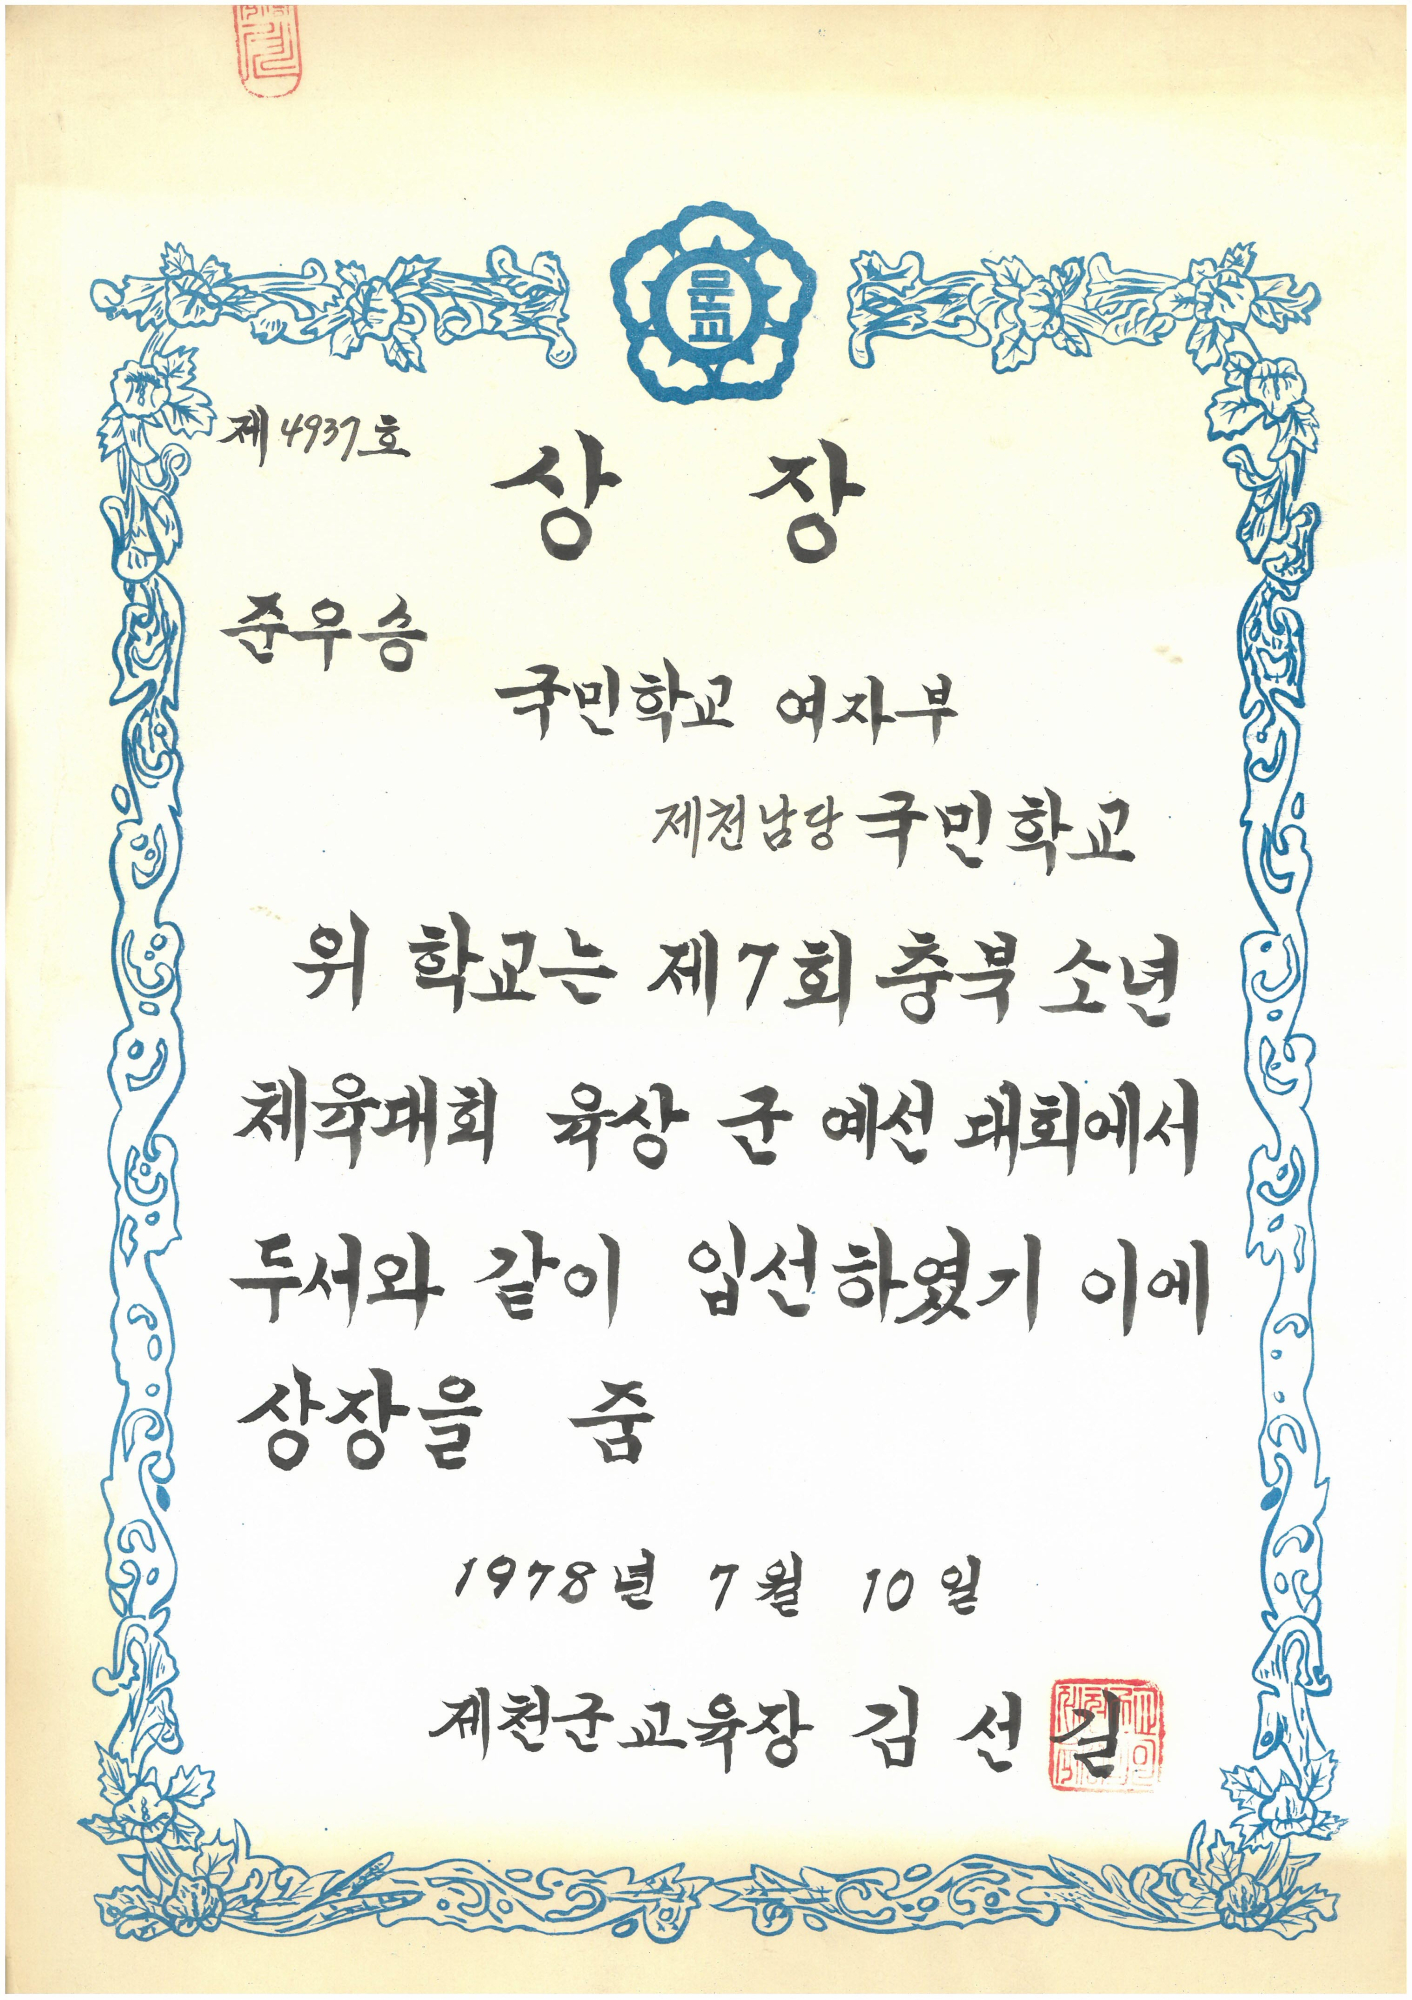 문교
제4937호
상 장
준우승
국민학교 여자부
제천남당 국민학교
위 학교는 제7회 충북 소년
체육대회 육상 군 예선 대회에서
두서와 같이 입선하였기 이에
상장을 줌
1978년 7월 10일
제천군교육장 김선길